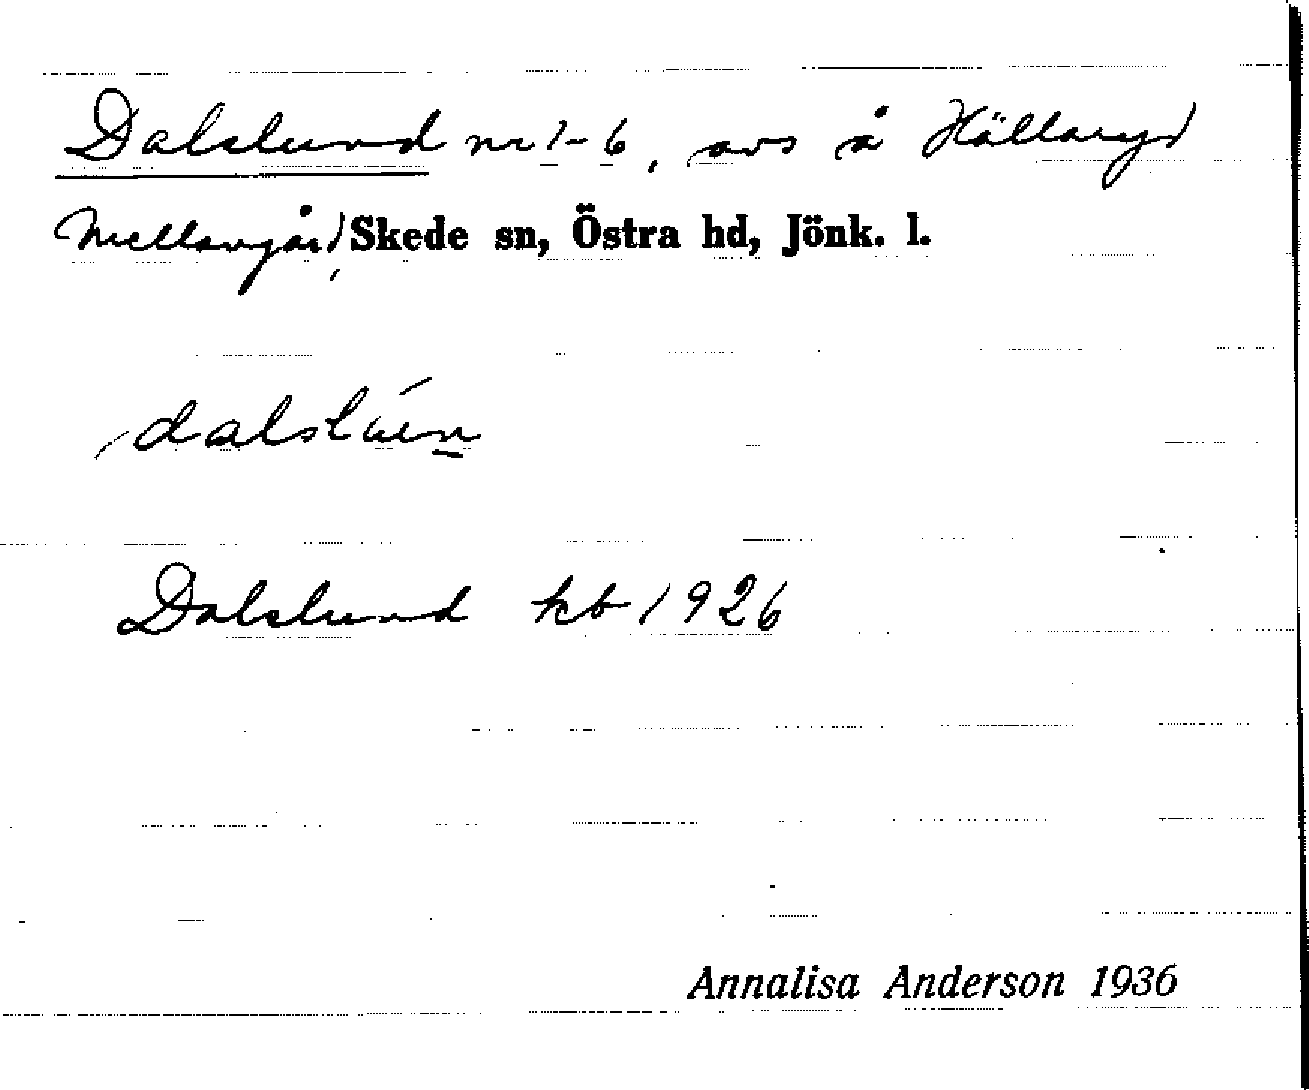 Dalslund nr 1-6, avs å Hällaryd
Mellangård, Skede sn, Östra hd, Jönk. l.
Dalslund kb 1926
Annalisa Anderson 1936